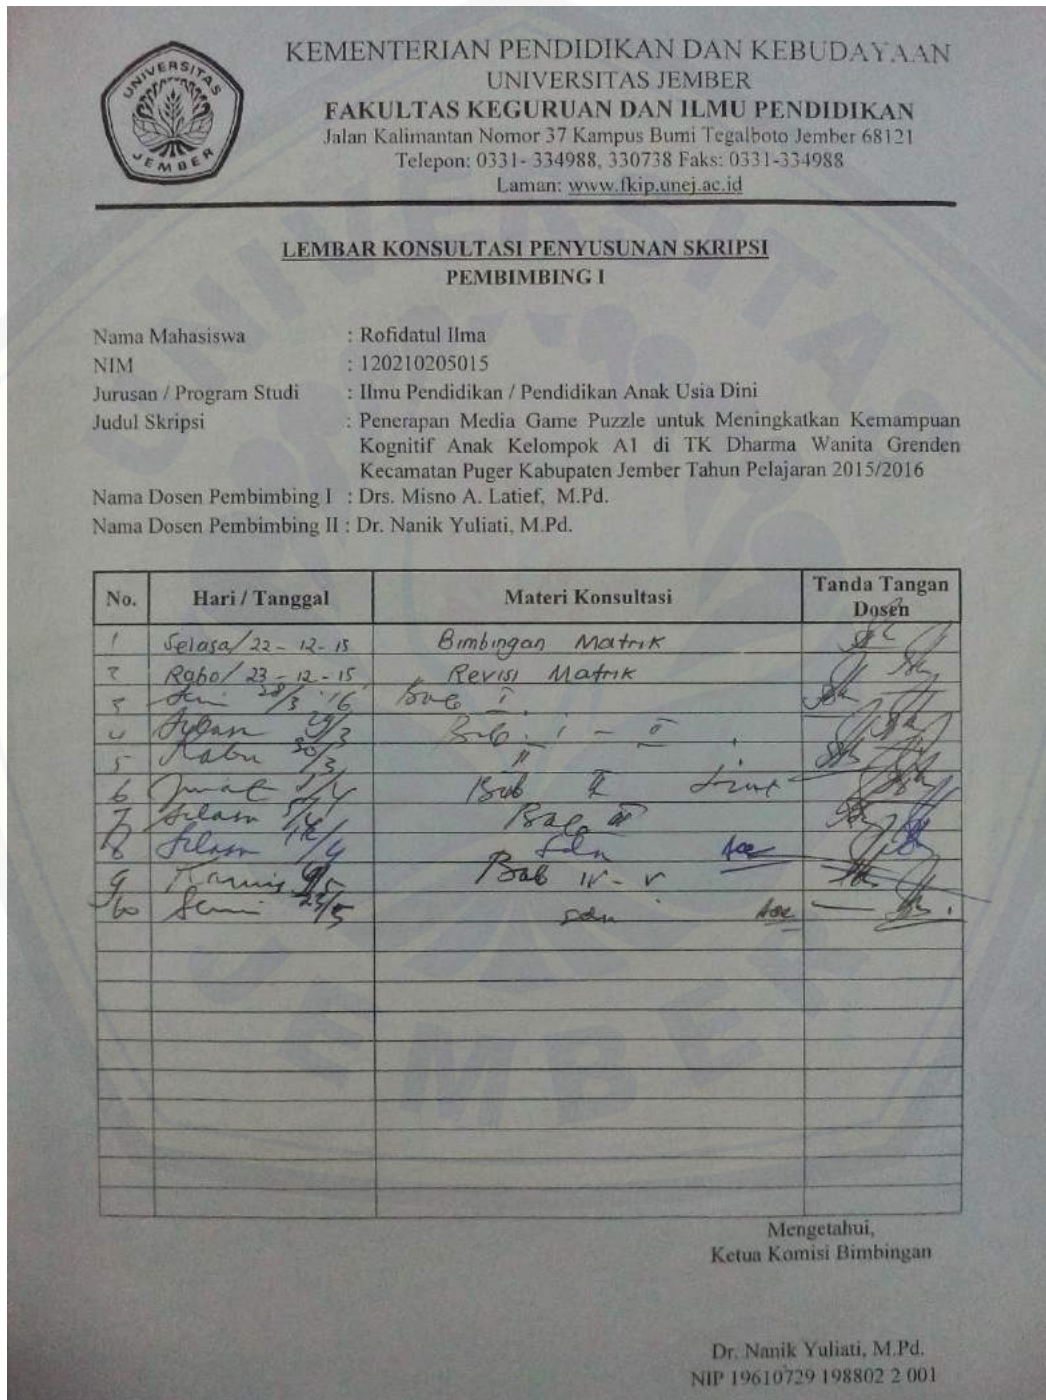 UNIVERSITAS
JEMBER
KEMENTERIAN PENDIDIKAN DAN KEBUDAYAAN
UNIVERSITAS JEMBER
FAKULTAS KEGURUAN DAN ILMU PENDIDIKAN
Jalan Kalimantan Nomor 37 Kampus Bumi Tegalboto Jember 68121
Telepon: 0331- 334988, 330738 Faks: 0331-334988
Laman: www.fkip.unej.ac.id
LEMBAR KONSULTASI PENYUSUNAN SKRIPSI
PEMBIMBING I
Nama Mahasiswa : Rofidatul Ilma
NIM : 120210205015
Jurusan / Program Studi : Ilmu Pendidikan / Pendidikan Anak Usia Dini
Judul Skripsi : Penerapan Media Game Puzzle untuk Meningkatkan Kemampuan
Kognitif Anak Kelompok A1 di TK Dharma Wanita Grenden
Kecamatan Puger Kabupaten Jember Tahun Pelajaran 2015/2016
Nama Dosen Pembimbing I : Drs. Misno A. Latief, M.Pd.
Nama Dosen Pembimbing II : Dr. Nanik Yuliati, M.Pd.
No. Hari / Tanggal Materi Konsultasi Tanda Tangan Dosen
1 Selasa/ 22 - 12 - 15 Bimbingan Matrik
2 Rabo/ 23 - 12 - 15 Revisi Matrik
3 28/3 '16 Bab I
4 29/3 Bab I - II
5 Rabu 30/3 II
6 Bab II
7 Bab III
8 Acc
9 Kamis Bab IV - V
10 Acc
Mengetahui,
Ketua Komisi Bimbingan
Dr. Nanik Yuliati, M.Pd.
NIP 19610729 198802 2 001